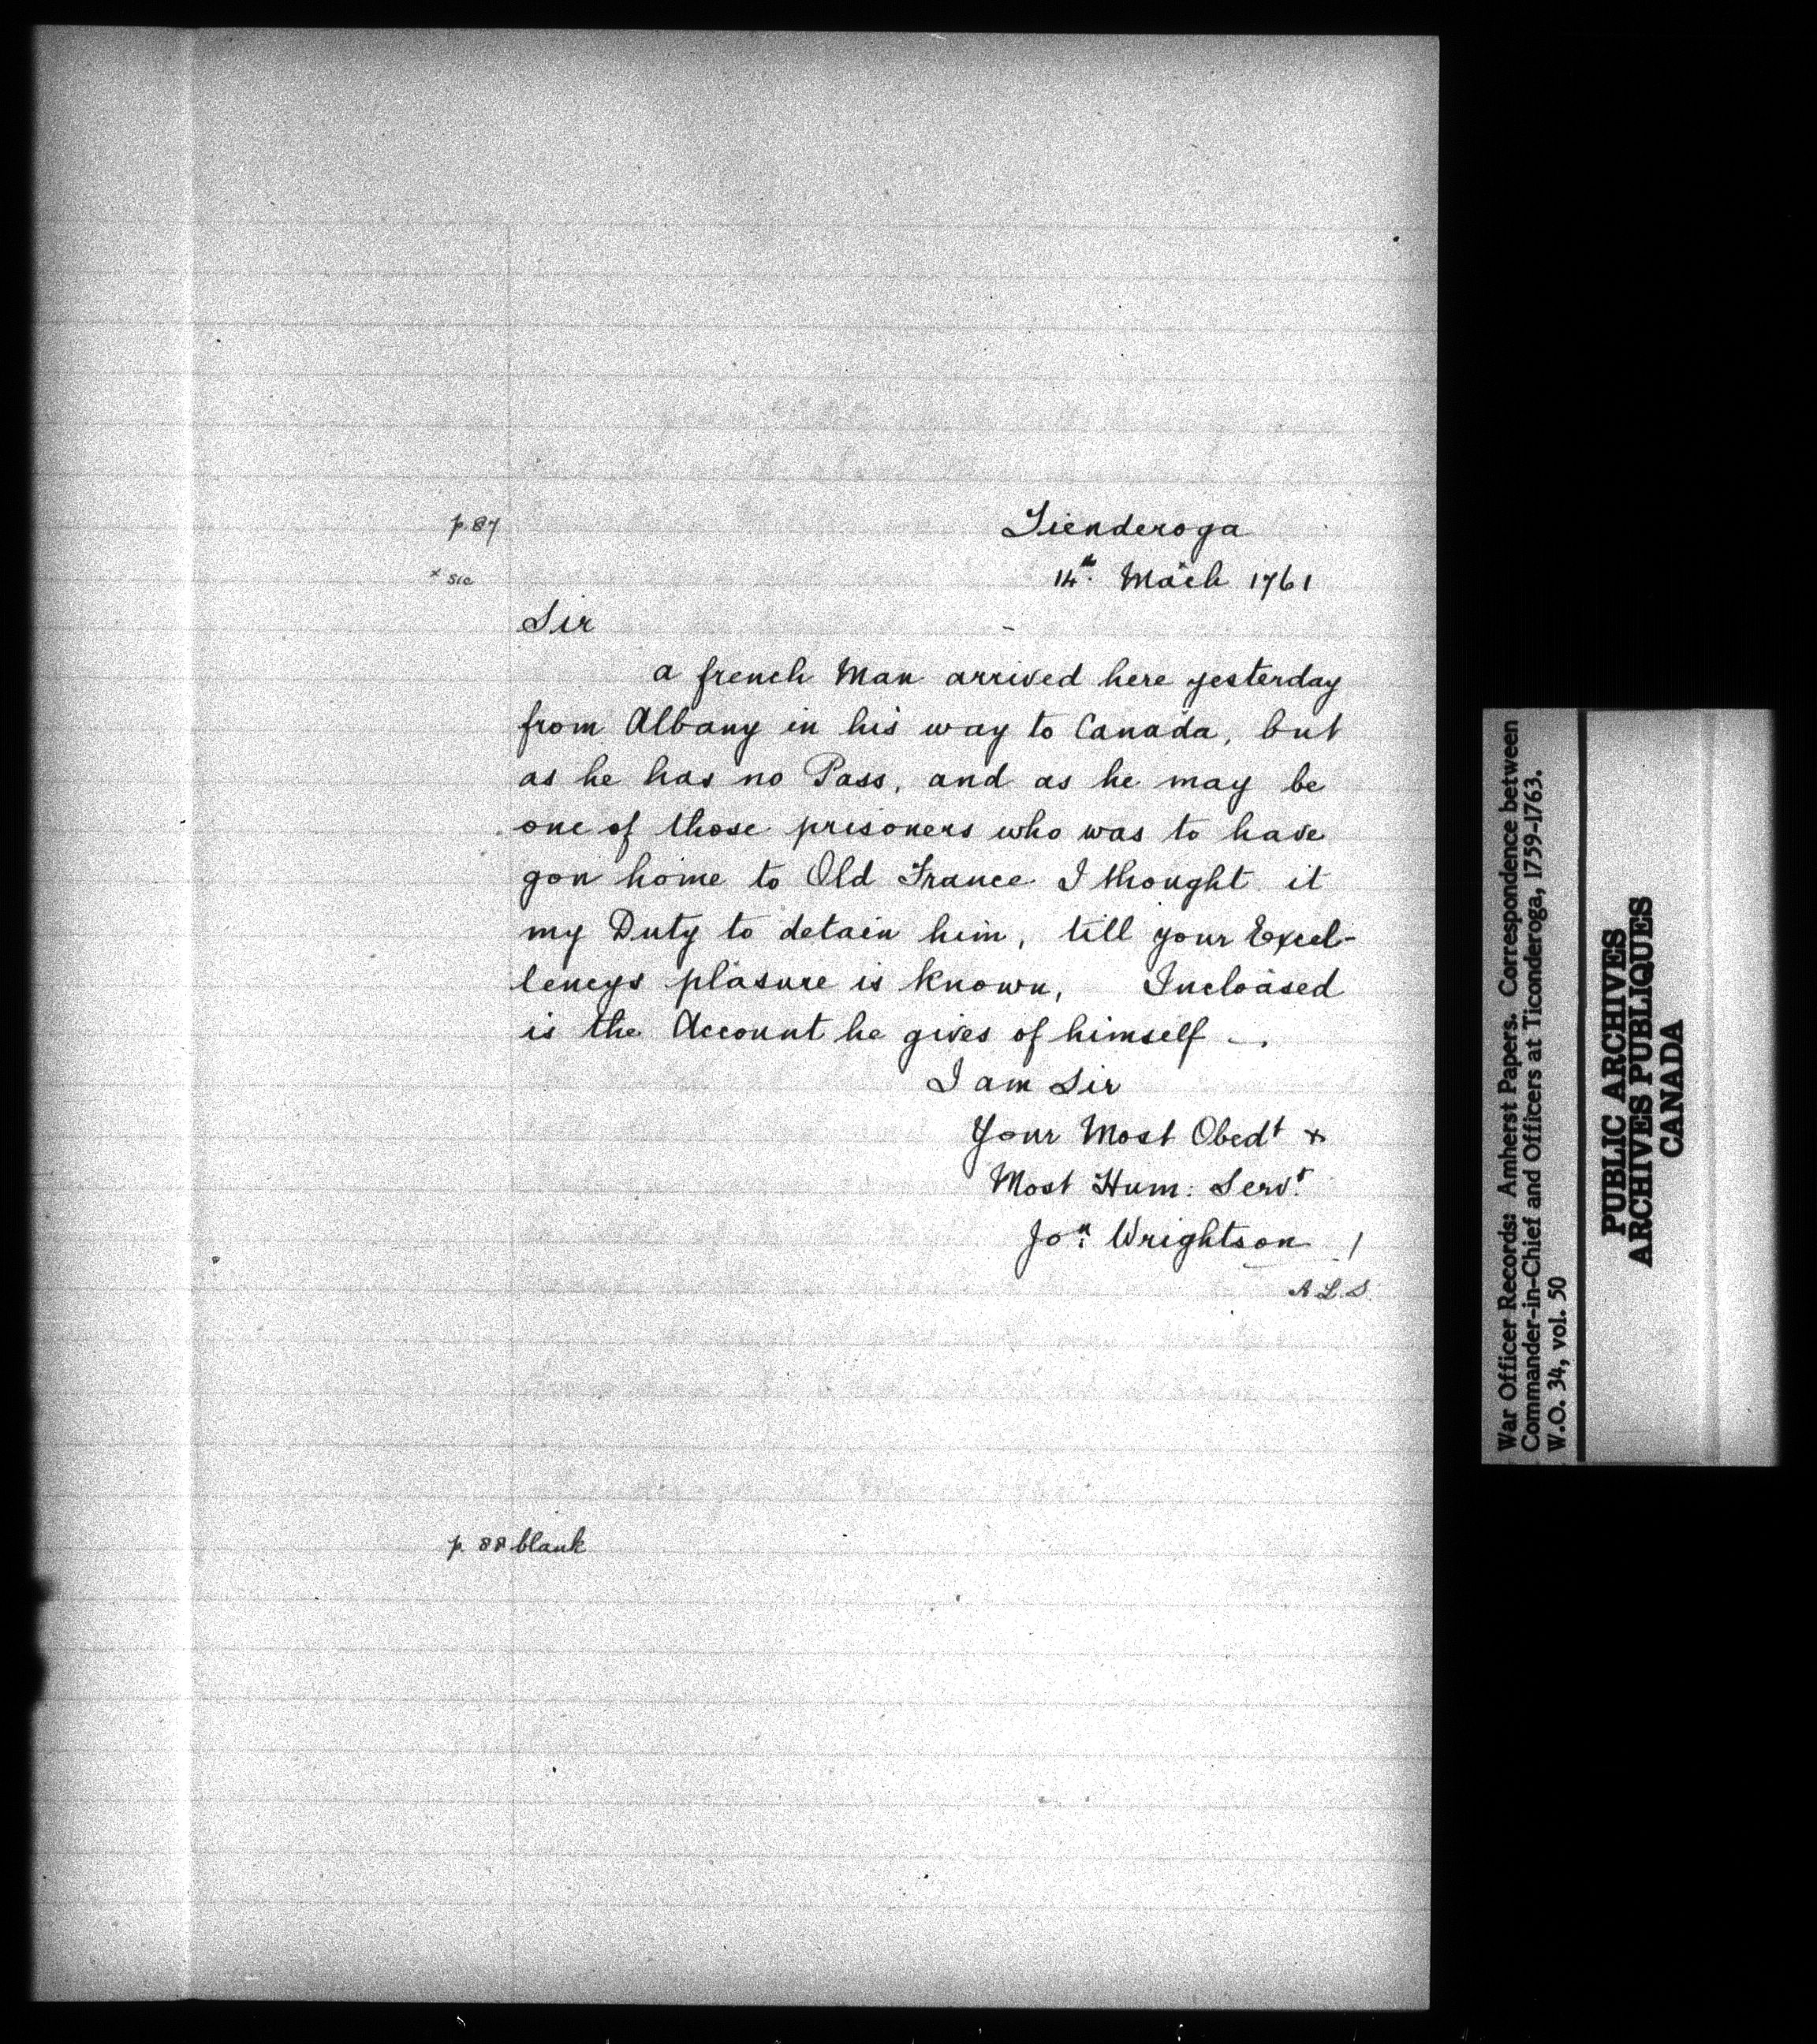 p. 87
Tienderoga
x sic
14th. Mäch 1761
Sir
a french Man arrived here yesterday
from Albany in his way to Canada, but
as he has no Pass, and as he may be
one of those prisoners who was to have
gon home to Old France I thought it
my Duty to detain him, till your Excel-
lencys pläsure is known, Incloäsed
is the Account he gives of himself —.
I am Sir
Your Most Obedt &
Most Hum: Servt.
Jon: Wrightson /
A.L.S.
p. 88 blank
War Officer Records: Amherst Papers. Correspondence between
Commander-in-Chief and Officers at Ticonderoga, 1759-1763.
W.O. 34, vol. 50
PUBLIC ARCHIVES
ARCHIVES PUBLIQUES
CANADA